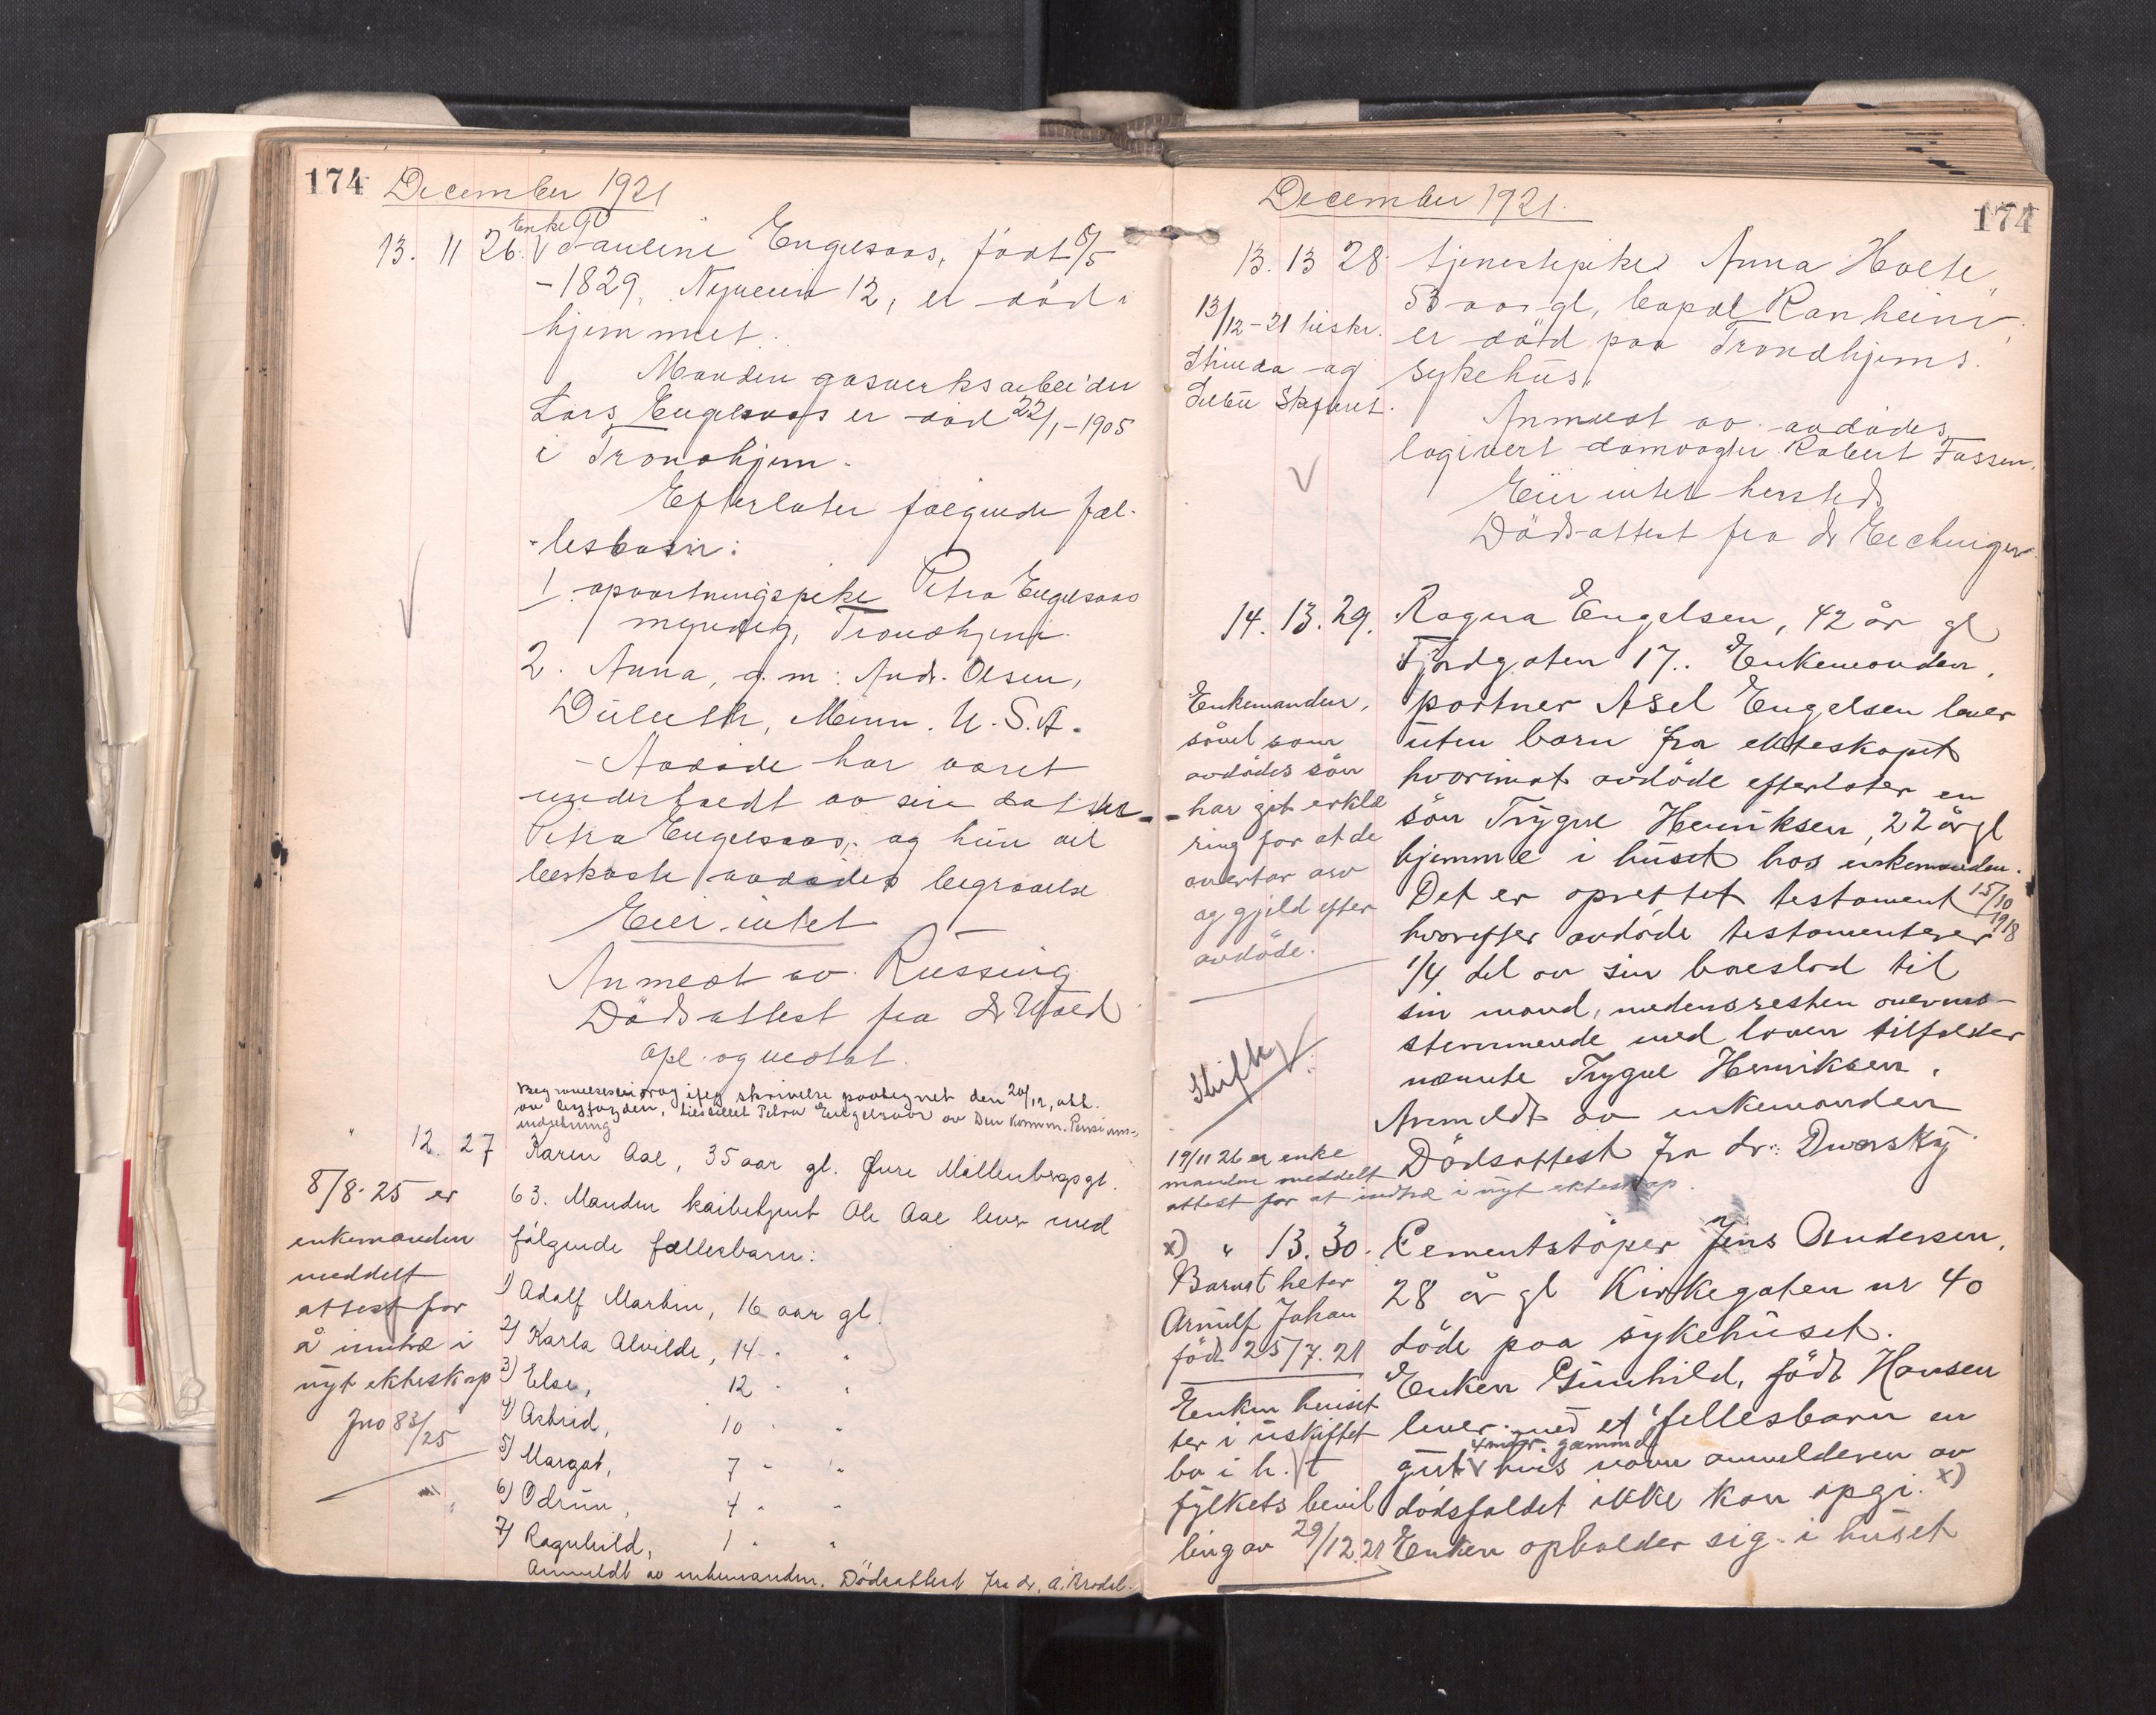 174 December 1921
13. 11 26. Enke Pauline Engelsaas, født 8/5
-1829, Nyveien 12, er död i
hjemmet.
Manden gasverksarbeider
Lars Engelsaas er död 22/1-1905
i Trondhjem.
Efterlater følgende fæl-
lesbarn:
1. opvartningspike Petra Engelsaas
myndig, Trondhjem.
2. Anna, g.m. Andr. Olsen,
Duluth, Minn. U.S.A.
Avdøde har været
underholdt av sin datter
Petra Engelsaas, og hun vil
bekoste avdødes begravelse
Eier intet
Anmeldt av Russing
Dödsattest fra dr
opl. og vedtat.
Begravelsesbidrag ifølg skrivelse paategnet den 20/12, utb.
av byfogden, tilstillet Petra Engelsaas av Den Komm. Pensjons-
indretning
" 12. 27 Karen Aae, 35 aar gl. Øvre Møllenbergsgt.
63. Manden Ole Aae lever med
følgende fællesbarn:
1) Adolf Martin, 16 aar gl.
2) Karla Alvilde, 14 " "
3) Else, 12 " "
4) Astrid, 10 " "
5) Margot, 7 " "
6) Odrun, 4 " "
7) Ragnhild, 1 " "
Anmeldt av enkemanden. Dödsattest fra dr. A.
8/8-25 er
enkemanden
meddelt
attest for
å inntræ i
nyt ekteskap
Jno 83/25
December 1921. 174
13. 13 28 tjenestepike Anna Holte
53 aar gl, bopæl Ranheim,
er død paa Trondhjems
sykehus.
Anmeldt av avdødes
logivert damvogter Robert Fossen.
Eier intet hersteds
Dödsattest fra dr
13/12-21 tilskr.
Strinda og
Selbu Skifteret.
14. 13. 29. Ragna Engelsen, 42 år gl
Fjordgaten 17.. Enkemanden,
portner Axel Engelsen lever
uten barn fra ekteskapet
hvorimot avdöde efterlater en
sön Trygve Henriksen, 22 år gl
hjemme i huset hos enkemanden.
Det er oprettet testament 15/10 1918
hvorefter avdöde testamenterer
1/4 del av sin boeslod til
sin mand, medens resten overens-
stemmende med loven tilfalder
nævnte Trygve Henriksen.
Anmeldt av enkemanden
Dödsattest fra dr: Dworsky
Enkemanden,
såvel som
avdödes sön
har git erklæ
ring for at de
overtar arv
og gjeld efter
avdöde.
Skifte
19/11 26 er enke
manden meddelt
attest for at indtræ i nyt ekteskap.
x) " 13. 30. Cementstöper Jens Andersen,
28 år gl Kirkegaten nr 40
döde paa sykehuset.
Enken Gunhild, född Hansen
lever med et fellesbarn en
gut 4 mdr. gammel hvis navn anmelderen av
dödsfaldet ikke kan opgi. x)
Enken opholder sig i huset
Barnet heter
Arnulf Johan
född 25/7.21
Enken henset
ter i uskiftet
bo i h. t
fylkets bevil
ling av 29/12.21